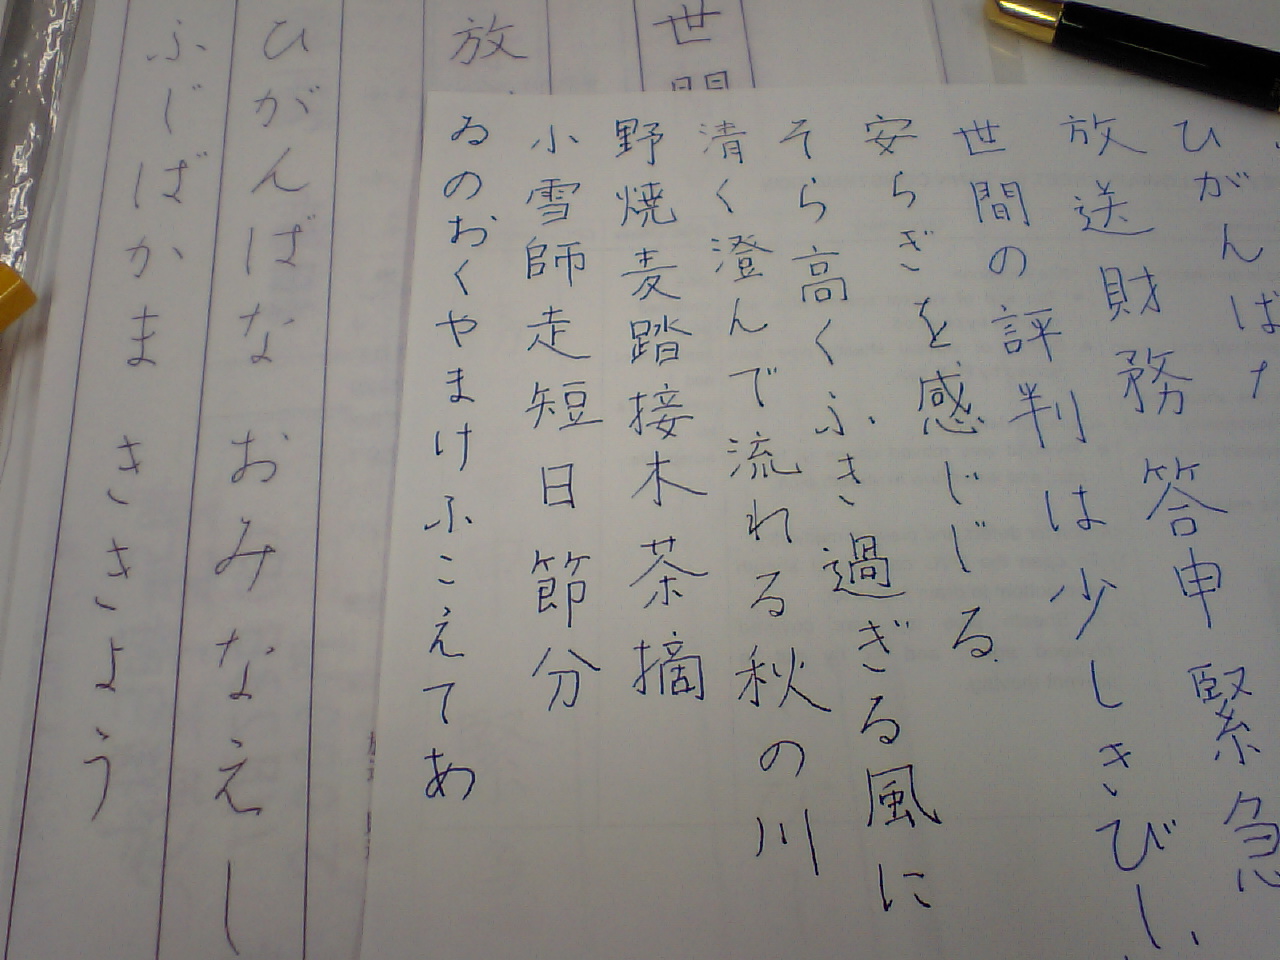 ひがんば
放送財務答申緊急
世間の評判は少しきびしい
安らぎを感じじる
そら高くふき過ぎる風に
清く澄んで流れる秋の川
野焼麦踏接木茶摘
小雪師走短日節分
ゐのおくやまけふこえてあ
世間
放
ひがんばな おみなえし
ふじばかま ききょう